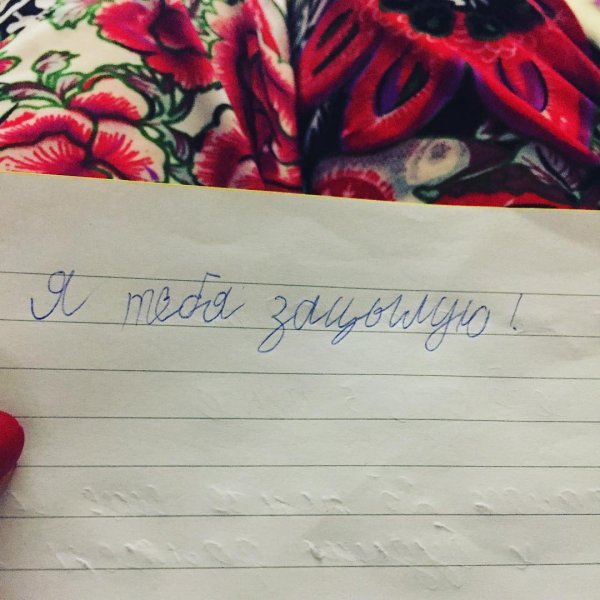 Я тебя зацылую!